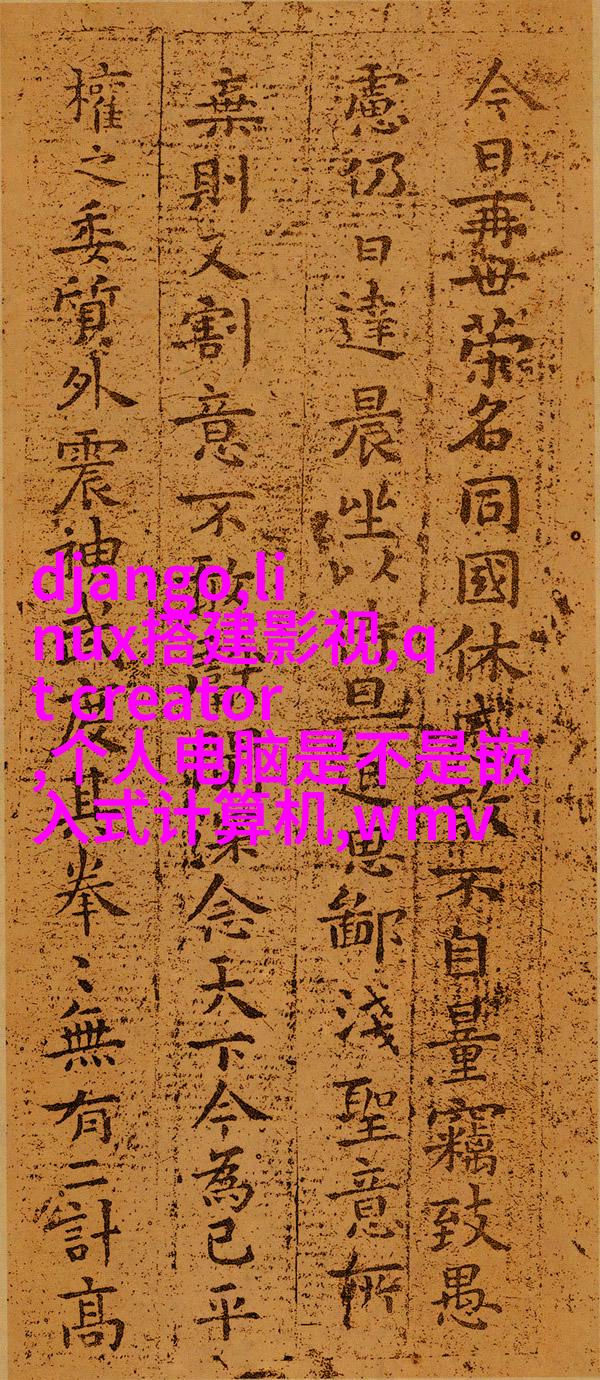 今日再世榮名同國休慼敢不自量竊致愚
慮仍日達晨坐以待旦退思鄙淺聖意所
棄則又割意不敢深念天下今為已平
權之委質外震神武度其拳〻無有二計高
django,li
nux搭建影视,q
t creator
,个人电脑是不是嵌
入式计算机,wmv